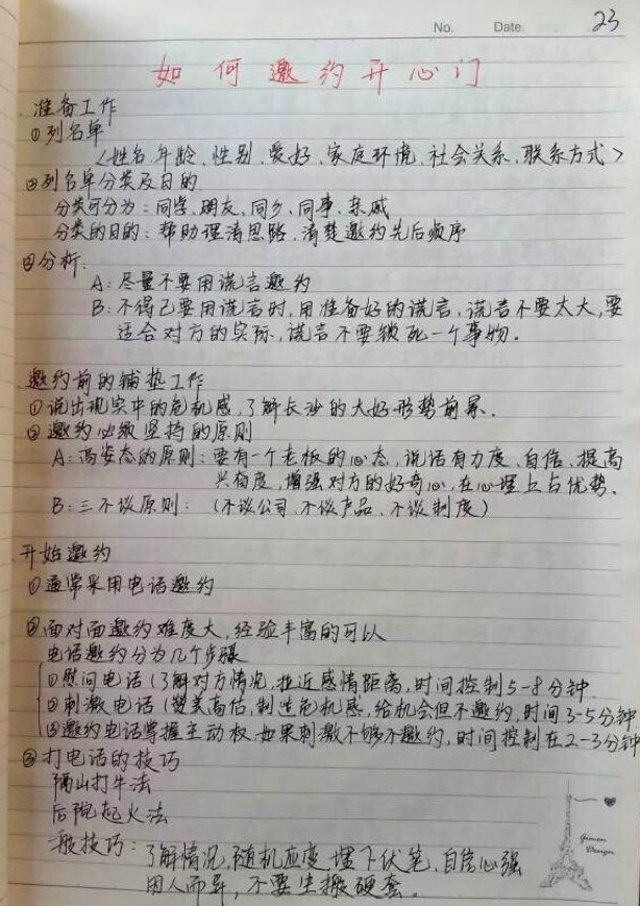 No. Date. 23
如何邀约开心门
准备工作
①列名单
<姓名、年龄、性别、爱好、家庭环境、社会关系、联系方式>
②列名单分类及目的
分类可分为:同学、朋友、同乡、同事、亲戚
分类的目的:帮助理清思路,清楚邀约先后顺序
③分析:
A:尽量不要用谎言邀约
B:不得已要用谎言时,用准备好的谎言,谎言不要太大,要
适合对方的实际,谎言不要锁死一个事物。
邀约前的铺垫工作
①说出现实中的危机感,了解长沙的大好形势前景.
②邀约必须坚持的原则
A:高姿态的原则:要有一个老板的心态,说话有力度、自信、提高
兴奋度,增强对方的好奇心,在心理上占优势.
B:三不谈原则:(不谈公司、不谈产品、不谈制度)
开始邀约
①通常采用电话邀约
②面对面邀约难度大,经验丰富的可以
电话邀约分为几个步骤
①慰问电话(了解对方情况,拉近感情距离,时间控制5-8分钟
②刺激电话(赞美高估,制造危机感,给机会但不邀约,时间3-5分钟
③邀约电话掌握主动权,如果刺激不够不邀约,时间控制在2-3分钟
③打电话的技巧
隔山打牛法
后院起火法
一般技巧:了解情况,随机应变,埋下伏笔,自信心强
因人而异,不要生搬硬套。
Design